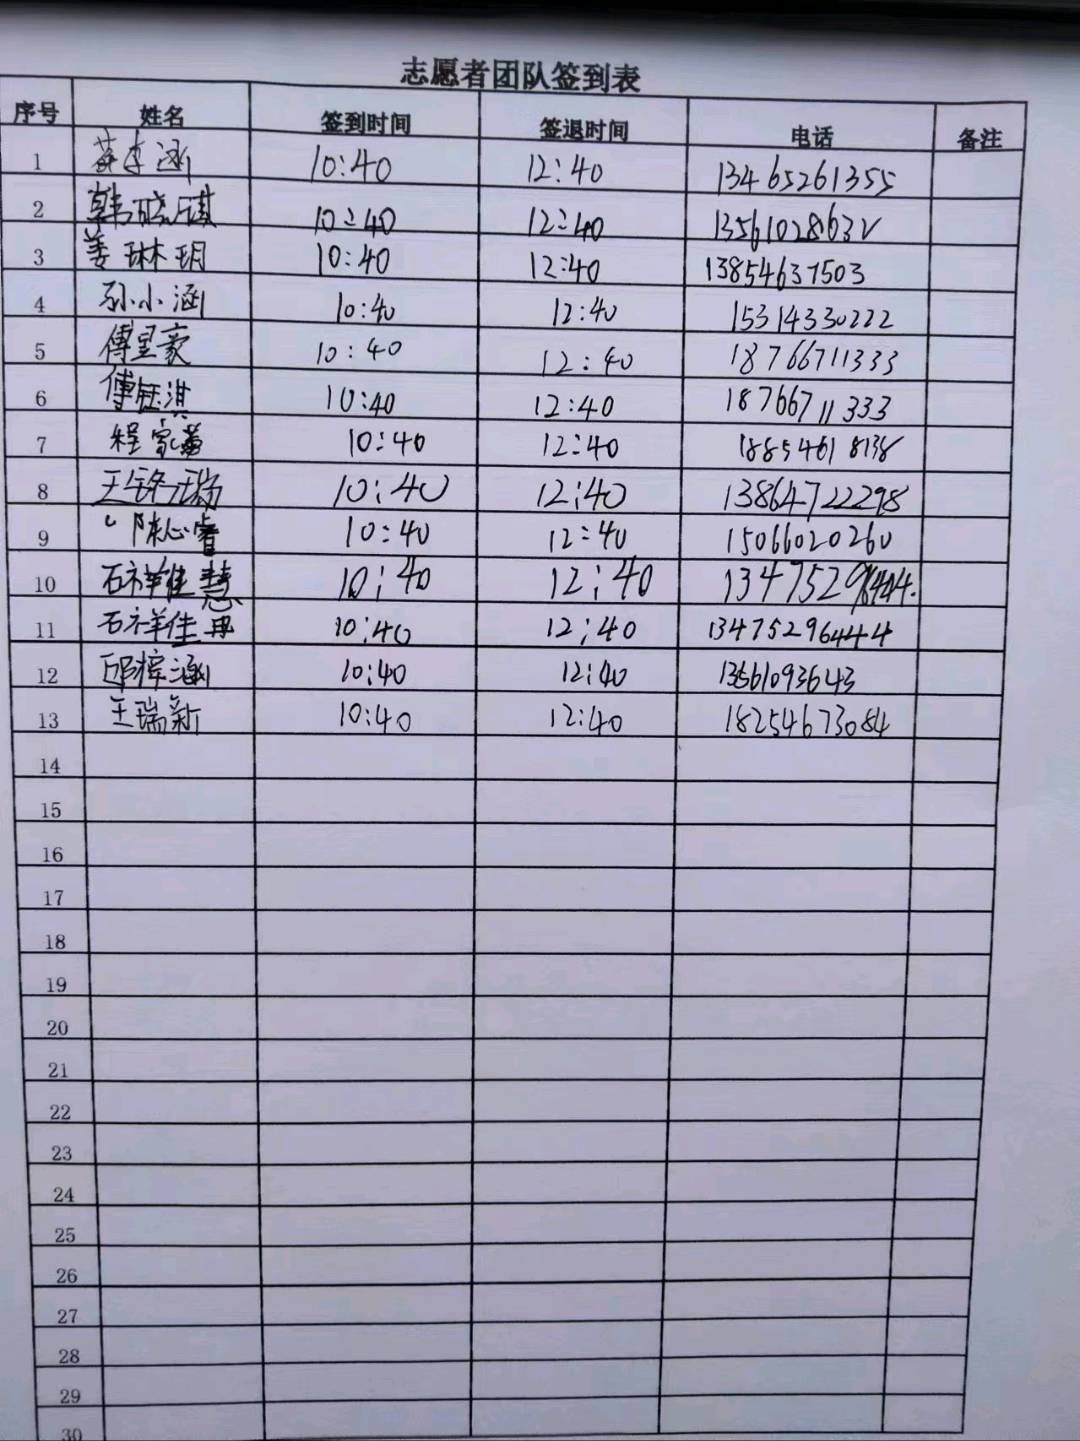 志愿者团队签到表
序号 姓名 签到时间 签退时间 电话 备注
1 涵 10:40 12:40 13465261355
2 韩晓琪 10:40 12:40 13561028632
3 姜琳玥 10:40 12:40 13854637503
4 孙小涵 10:40 12:40 15314330222
5 傅呈豪 10:40 12:40 18766711333
6 傅钰淇 10:40 12:40 18766711333
7 程家 10:40 12:40 18854618138
8 王 瑞 10:40 12:40 13864722298
9 陈心睿 10:40 12:40 15066020260
10 石祥佳慧 10:40 12:40
11 石祥佳 10:40 12:40 13475296444
12 邱梓涵 10:40 12:40 13661093643
13 王瑞新 10:40 12:40 18254673084
14
15
16
17
18
19
20
21
22
23
24
25
26
27
28
29
30